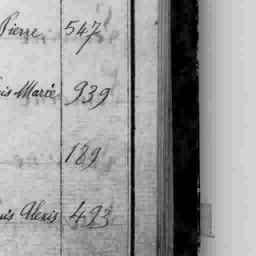 Pierre 547
is Marie 939
189
uis Alexis 423